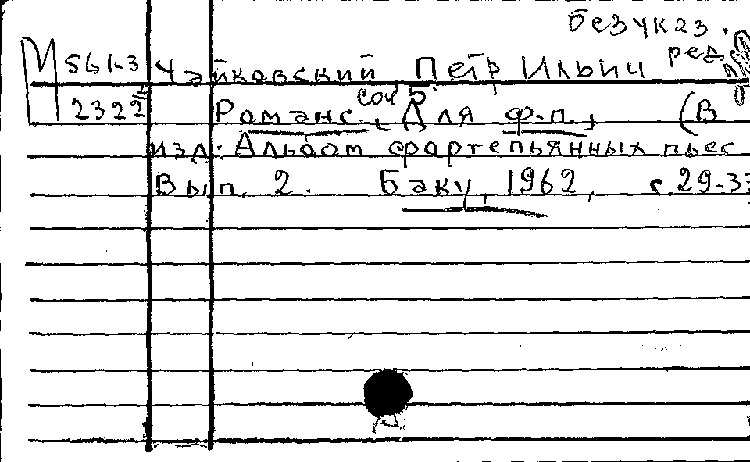 без указ.
М 561-3 Чайковский Петр Ильич ред.
2322 Романс, соч 5. Для ф.п., (В
изд: Альбом фортепьянных пьес
Вып. 2. Баку, 1962, с.29-33